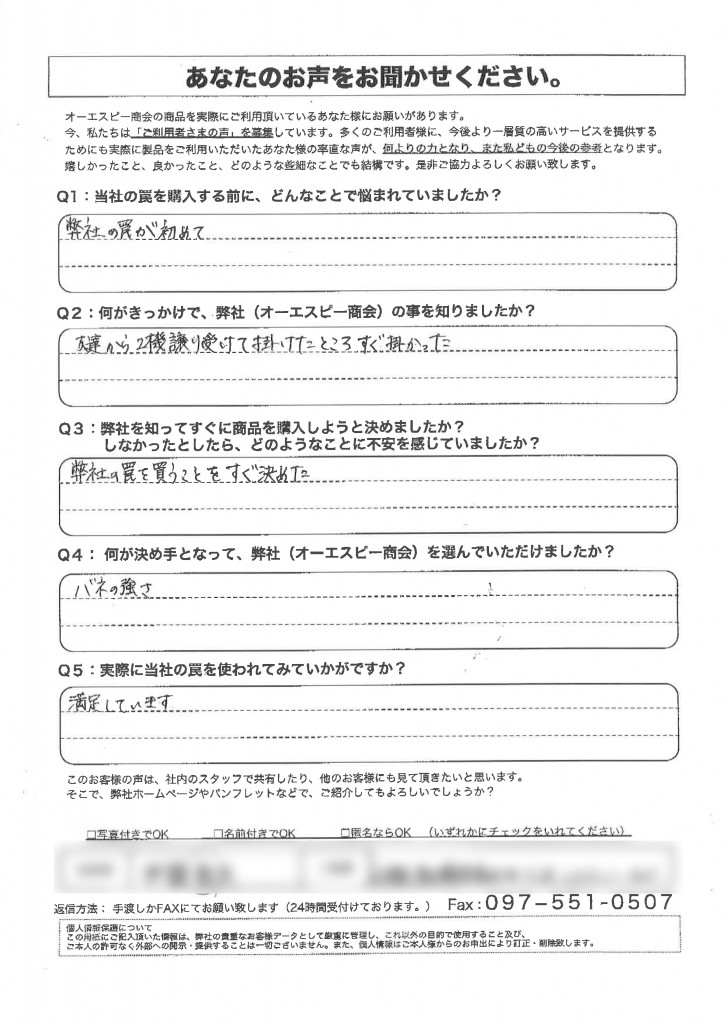 あなたのお声をお聞かせください。
オーエスピー商会の商品を実際にご利用頂いているあなた様にお願いがあります。
今、私たちは「ご利用者さまの声」を募集しています。多くのご利用者様に、今後より一層質の高いサービスを提供する
ためにも実際に製品をご利用いただいたあなた様の率直な声が、何よりの力となり、また私どもの今後の参考となります。
嬉しかったこと、良かったこと、どのような些細なことでも結構です。是非ご協力よろしくお願い致します。
Q1：当社の罠を購入する前に、どんなことで悩まれていましたか？
弊社の罠が初めて
Q2：何がきっかけで、弊社（オーエスピー商会）の事を知りましたか？
友達から2機譲り受けて掛けたところすぐ掛かった
Q3：弊社を知ってすぐに商品を購入しようと決めましたか？
しなかったとしたら、どのようなことに不安を感じていましたか？
弊社の罠を買うことをすぐ決めた
Q4： 何が決め手となって、弊社（オーエスピー商会）を選んでいただけましたか？
バネの強さ
Q5：実際に当社の罠を使われてみていかがですか？
満足しています
このお客様の声は、社内のスタッフで共有したり、他のお客様にも見て頂きたいと思います。
そこで、弊社ホームページやパンフレットなどで、ご紹介してもよろしいでしょうか？
□写真付きでOK □名前付きでOK □匿名ならOK （いずれかにチェックをいれてください）
返信方法： 手渡しかFAXにてお願い致します（24時間受付けております。） Fax：097-551-0507
個人情報保護について
この用紙にご記入頂いた情報は、弊社の貴重なお客様データとして厳重に管理し、これ以外の目的で使用すること及び、
ご本人の許可なく外部への開示・提供することは一切ございません。また、個人情報はご本人様からのお申出により訂正・削除致します。